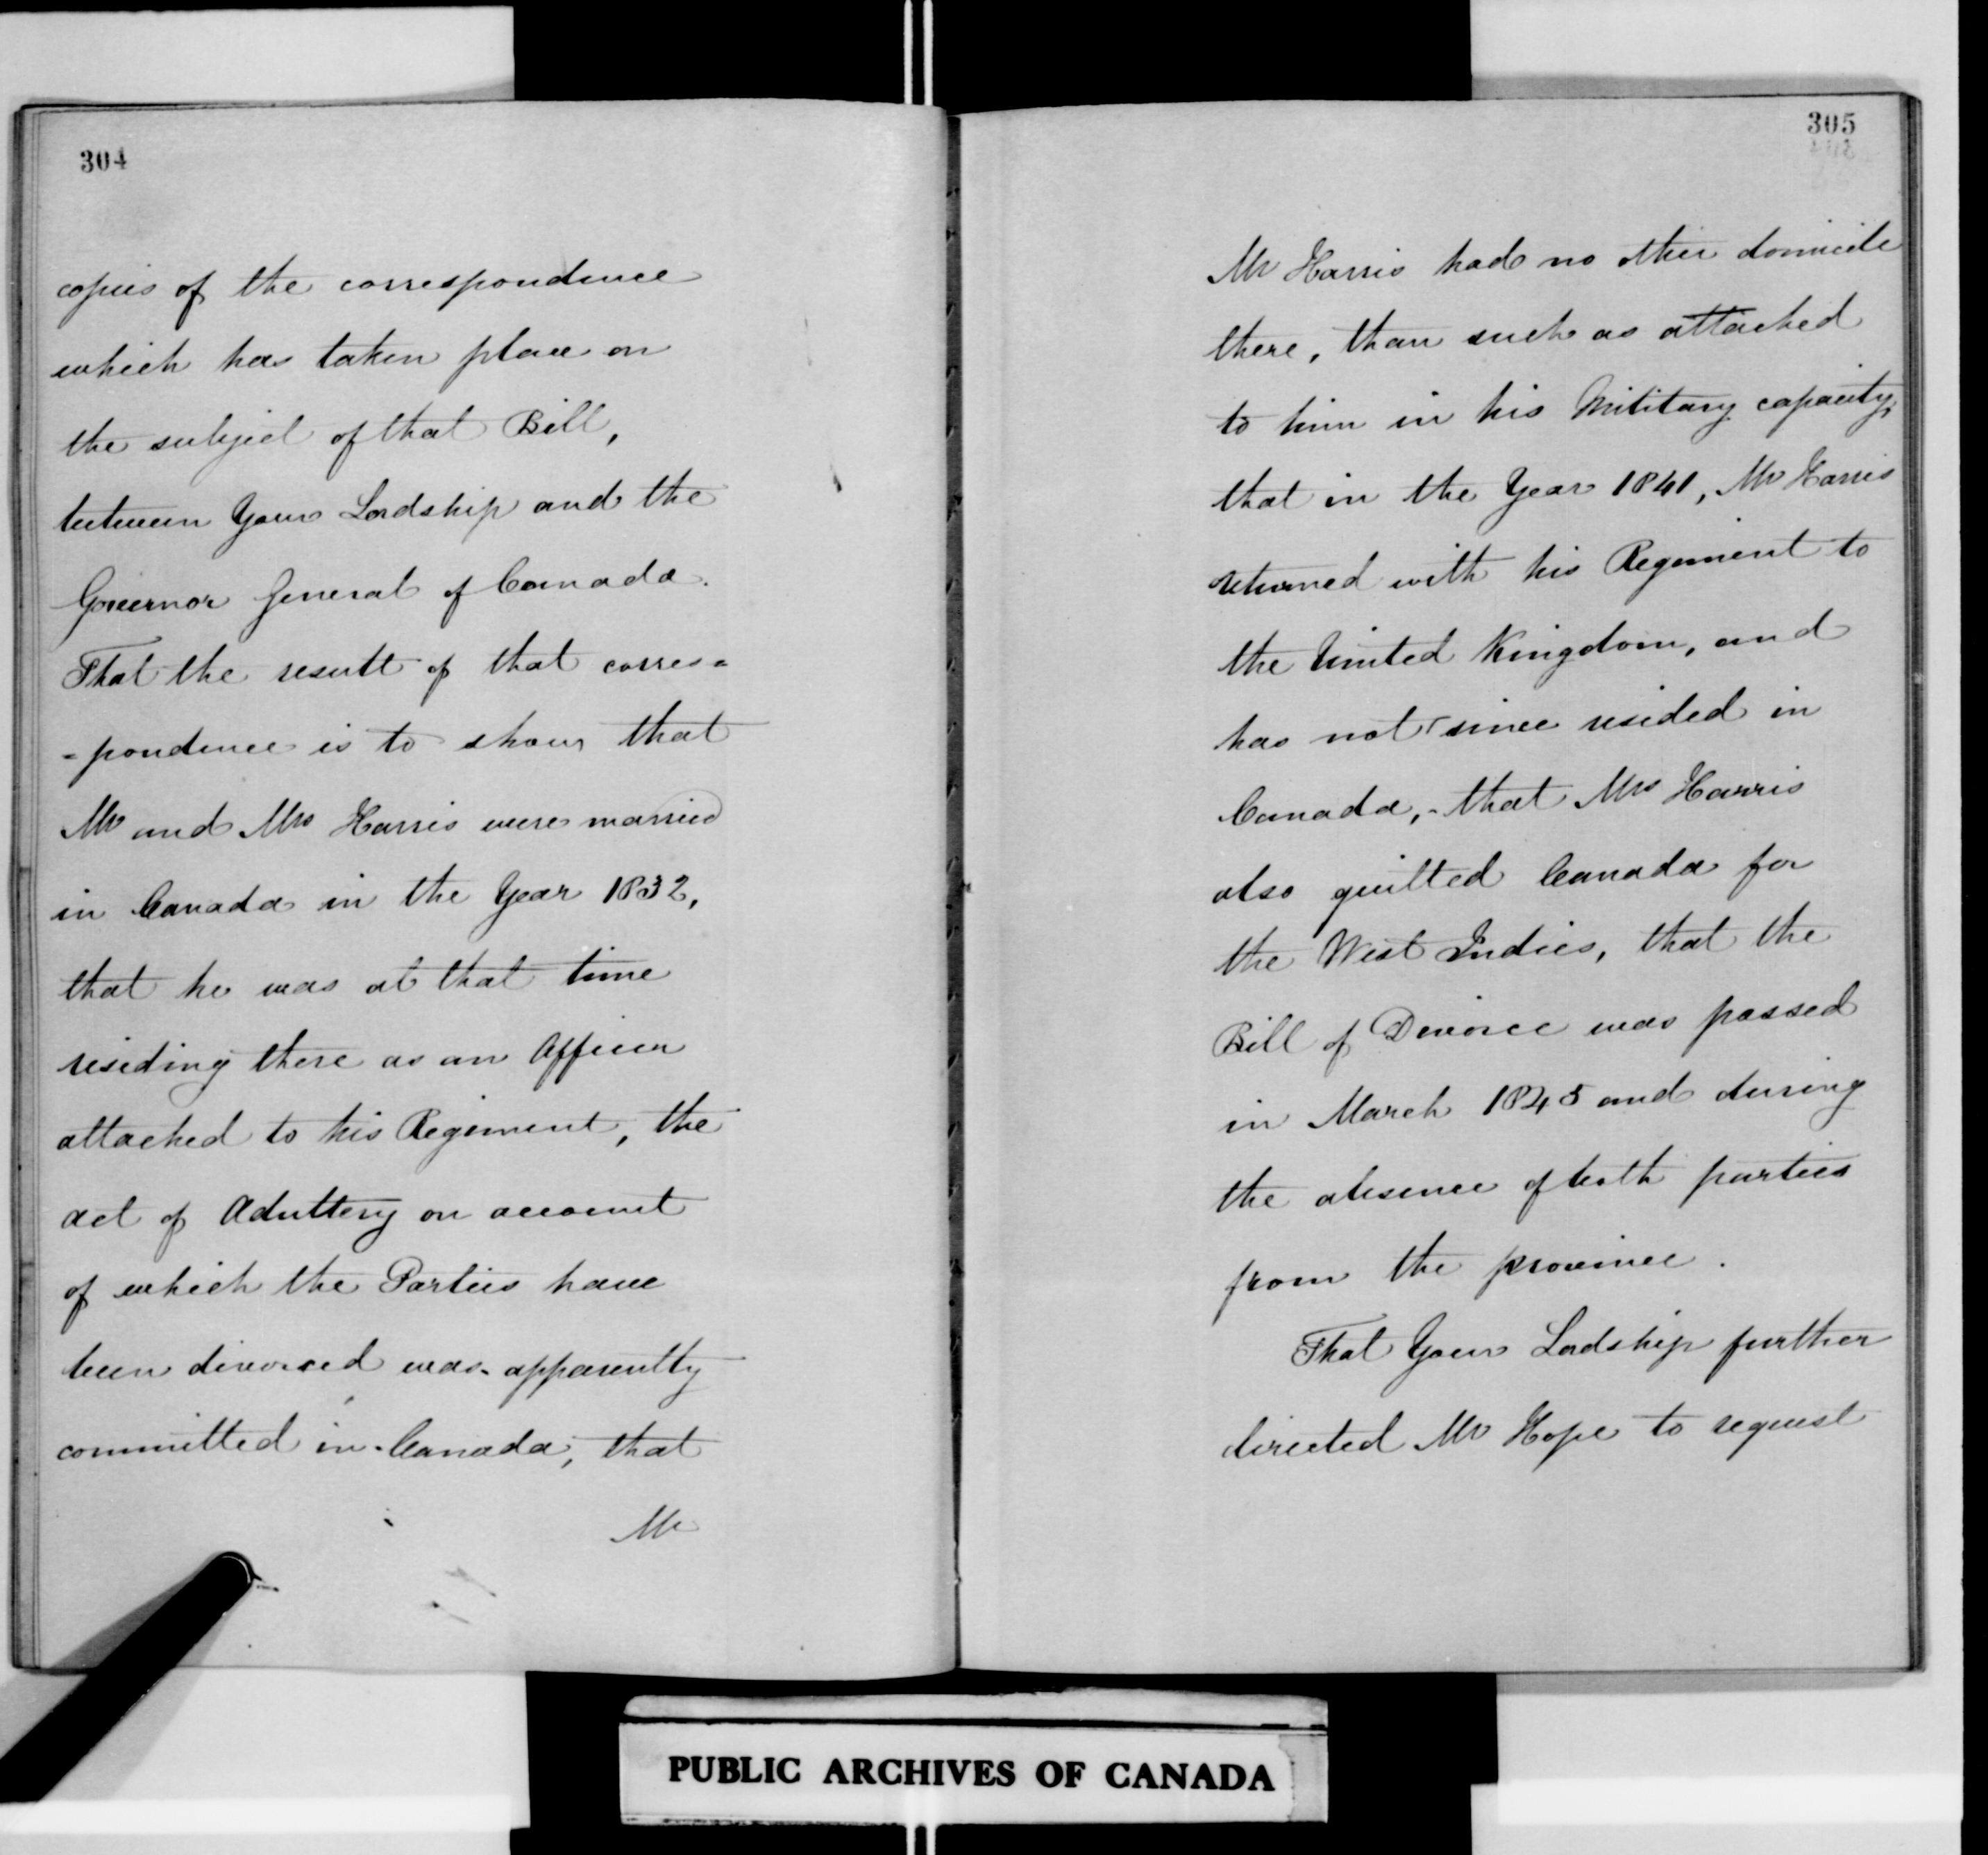 304
copies of the correspondence
which has taken place on
the subject of that Bill,
between Your Lordship and the
Governor General of Canada.
That the result of that corres=
=pondence is to show that
Mr and Mrs Harris were married
in Canada in the Year 1832,
that he was at that time
residing there as an Officer
attached to his Regiment, the
act of Adultery on account
of which the Parties have
been divorced was apparently
committed in Canada, that
Mr
305
Mr Harris had no other domicile
there, than such as attached
to him in his Military capacity,
that in the Year 1841, Mr Harris
returned with his Regiment to
the United Kingdom, and
has not since resided in
Canada, - that Mrs Harris
also quitted Canada for
the West Indies, that the
Bill of Divorce was passed
in March 1845 and during
the absence of both parties
from the province.
That Your Lordship further
directed Mr Hope to request
PUBLIC ARCHIVES OF CANADA